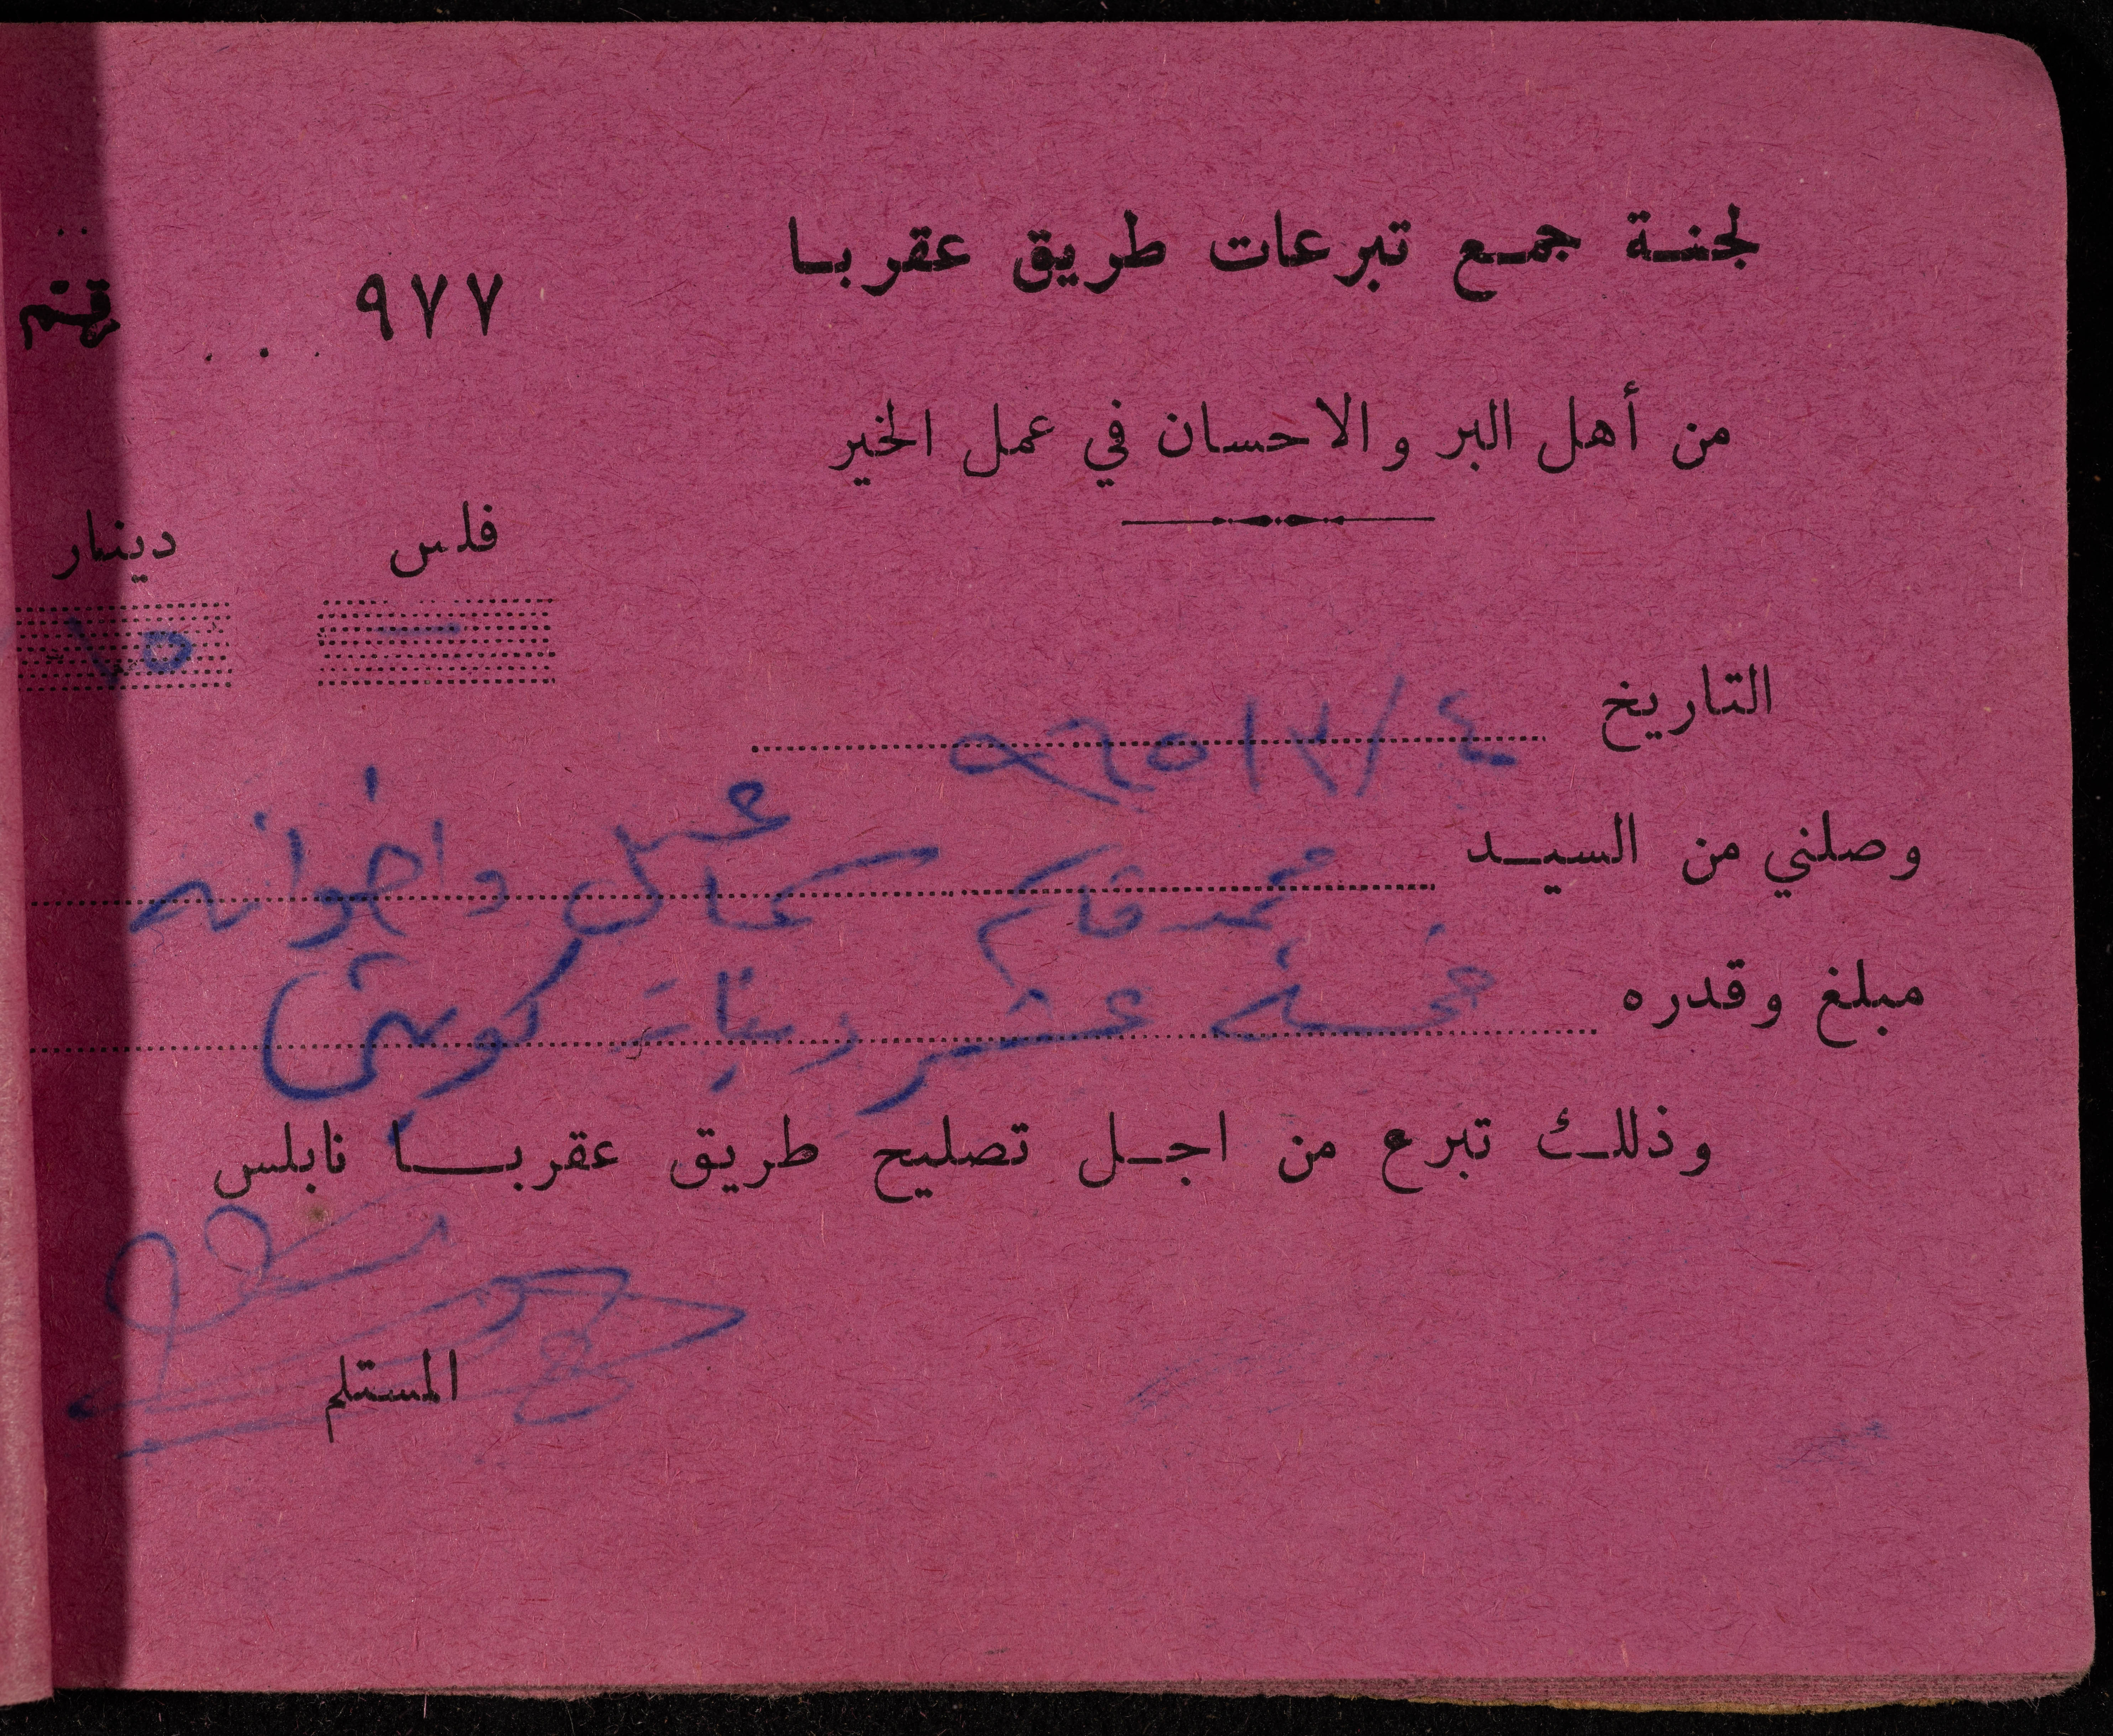 لجنة جمع تبرعات طريق عقربا
٩٧٧
من أهل البر والاحسان في عمل الخير
فلس دينار
— ١٥
التاريخ ٤ / ٣ / ٩٦٥
عقل
وصلني من السيد محمد قاسم كامل واخوانه
مبلغ وقدره خمسة عشر دينار كويتي
وذلك تبرع من اجل تصليح طريق عقربا نابلس
المستلم